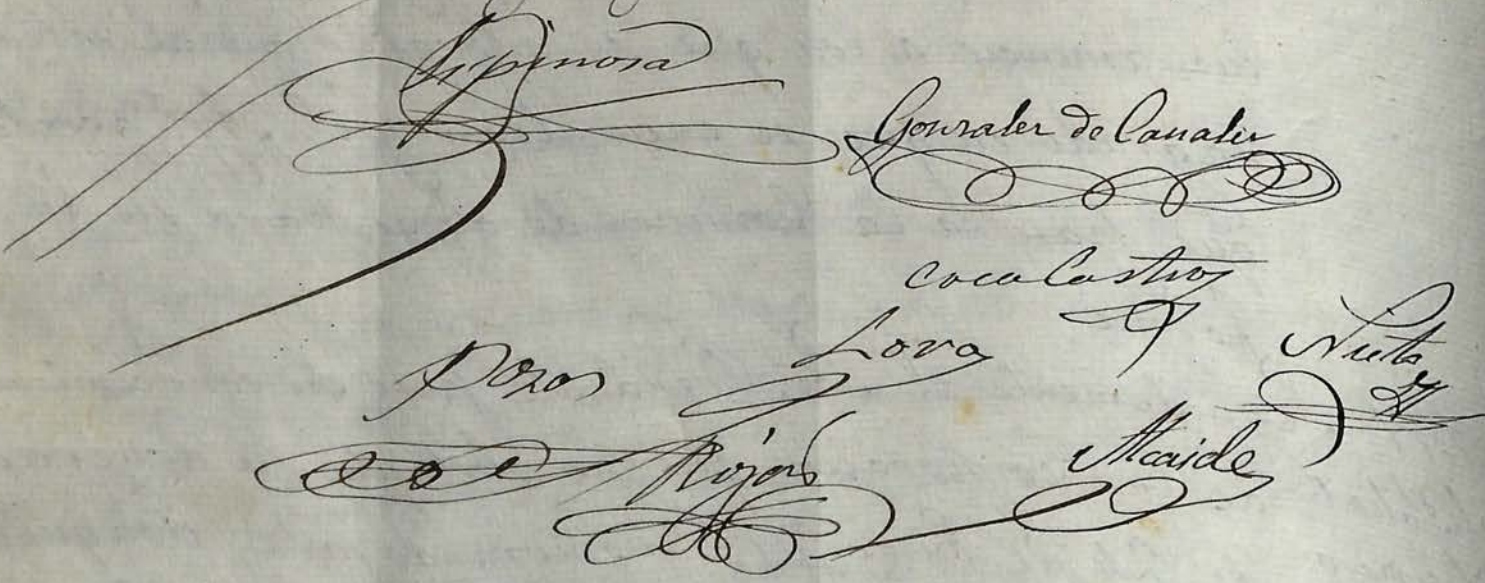 Espinosa
Gonzalez de Canales
Coca Castro
Lora
Nieto
Pozos
Rojas
Alcaide